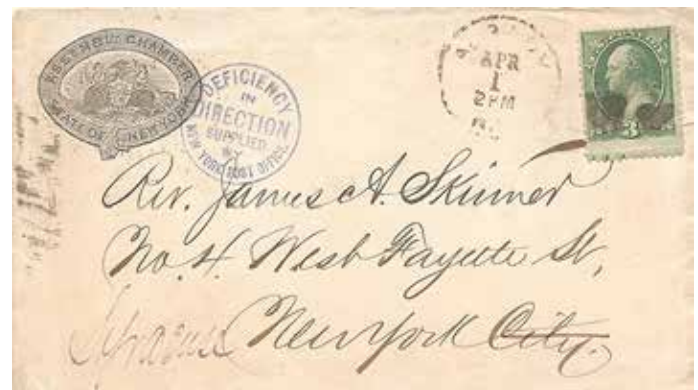 ASSEMBLY CHAMBER
STATE OF NEW YORK
DEFICIENCY
IN
DIRECTION
SUPPLIED
BY
NEW YORK POST OFFICE.
APR
1
2 PM
3
Rev. James A. Skinner
No. 4. West Fayette St,
Syracuse New York City.